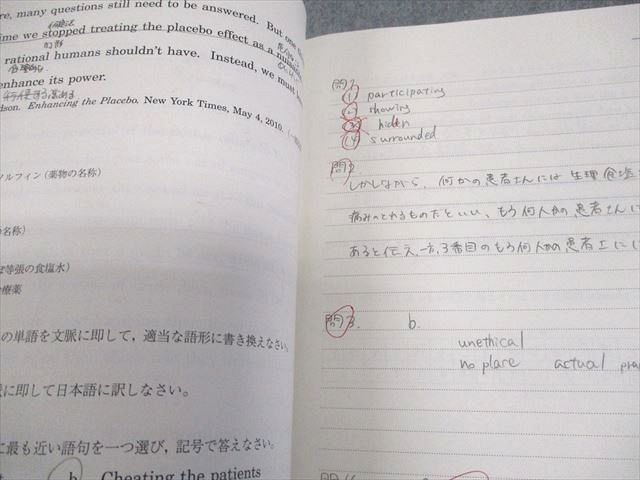 re, many questions still need to be answered. But one
ime we stopped treating the placebo effect as a
rational humans shouldn't have. Instead, we must
enhance its power.
dson. Enhancing the Placebo. New York Times, May 4, 2010.
ソルフィン(薬物の名称)
の名称)
ぼ等張の食塩水)
療薬
の単語を文脈に即して,適当な語形に書き換えなさい。
に即して日本語に訳しなさい。
に最も近い語句を一つ選び,記号で答えなさい。
b. Cheating the patients
問1
(1) participating
(2) showing
(3) hidden
(4) surrounded
問2.
しかしながら、何人かの患者さんには生理食塩
痛みのとれるものだといい、もう何人かの患者さんに
あると伝え、一方、3番目のもう何人かの患者さんには
問3. b.
unethical
no place actual